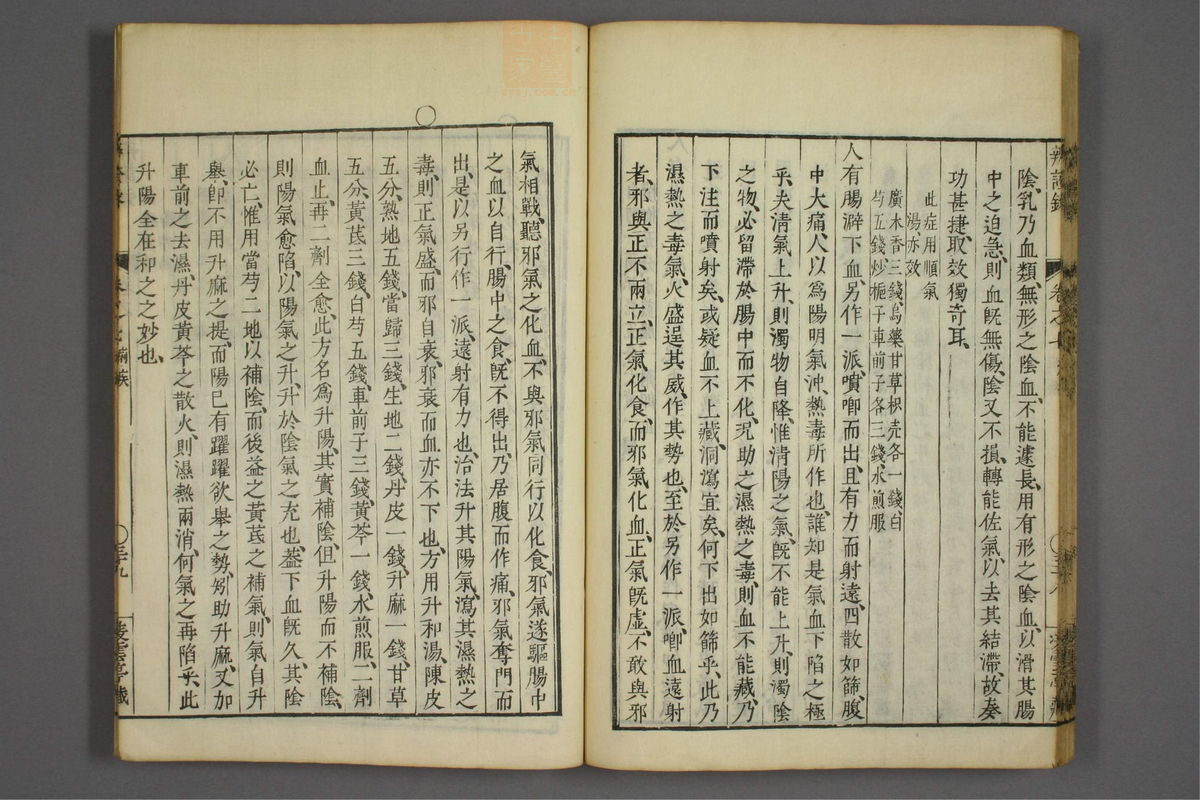 陰、乳乃血類、無形之陰血、不能遽長、用有形之陰血、以滑其腸
中之迫急、則血既無傷、陰又不損、轉能佐氣、以去其結滯、故奏
功甚捷、取效獨奇耳、
此症用順氣
湯亦效
廣木香三錢、烏藥甘草枳壳各一錢、白
芍五錢、炒梔子車前子各三錢、水煎服
人有腸澼下血、另作一派、噴唧而出、且有力而射遠、四散如篩、腹
中大痛、人以爲陽明氣沖、熱毒所作也、誰知是氣血下陷之極
乎、夫清氣上升、則濁物自降、惟清陽之氣、既不能上升、則濁陰
之物、必留滯於腸中而不化、況助之濕熱之毒、則血不能藏、乃
下注而噴射矣、或疑血不上藏、洞瀉宜矣、何下出如篩乎、此乃
濕熱之毒氣、火盛逞其威、作其勢也、至於另作一派、唧血遠射
者、邪與正不兩立、正氣化食、而邪氣化血、正氣既虛、不敢與邪
氣相戰、聽邪氣之化血、不與邪氣同行以化食、邪氣遂驅腸中
之血以自行、腸中之食、既不得出、乃居腹而作痛、邪氣奪門而
出、是以另行作一派、遠射有力也、治法升其陽氣、瀉其濕熱之
毒、則正氣盛、而邪自衰、邪衰而血亦不下也、方用升和湯、陳皮
五分、熟地五錢、當歸三錢、生地二錢、丹皮一錢、升麻一錢、甘草
五分、黃芪三錢、白芍五錢、車前子三錢、黃芩一錢、水煎服、二劑
血止、再二劑全愈、此方名爲升陽、其實補陰、但升陽而不補陰、
則陽氣愈陷、以陽氣之升、升於陰氣之充也、蓋下血既久、其陰
必亡、惟用當芍二地以補陰、而後益之黃芪之補氣、則氣自升
舉、卽不用升麻之提、而陽已有躍躍欲舉之勢、矧助升麻、又加
車前之去濕、丹皮黃芩之散火、則濕熱兩消、何氣之再陷乎、此
升陽全在和之之妙也、